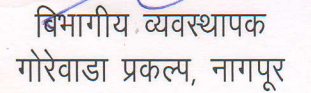 बिभागीय व्यवस्थापक
गोरेवाडा प्रकल्प, नागपूर